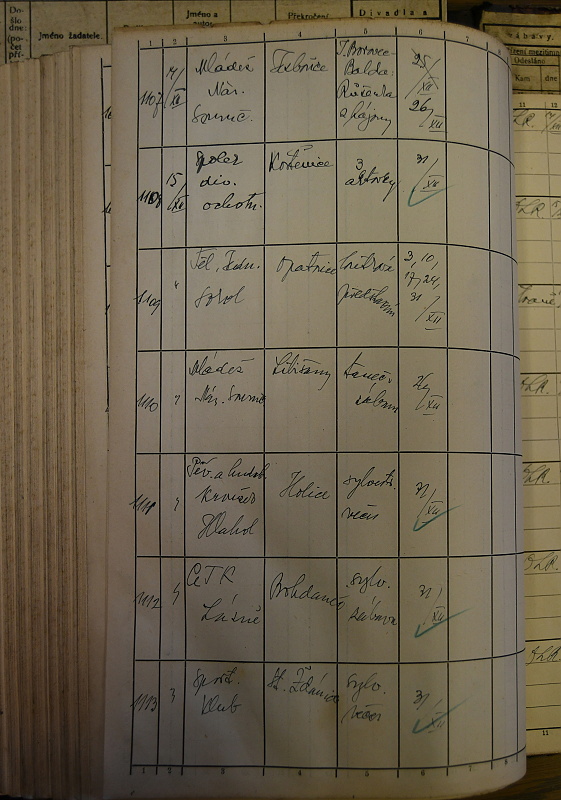 Do-
šlo
dne:
(po-
čet
pří-
Jméno žadatele.
Jméno a
autor
Překročení
Divadla a
ábavy.
řízení mezitímn
Odesláno
Kam
dne
1 2 3 4 5 6 7 8
11 12
1107
XII
Mládež
Nár.
Souruč.
Balda
Růženka
a hájový
25/XII
26/XII
1108
15/XII
Spolek
div.
ochotn.
3
aktovky
31/XII
1109
"
Těl. Jedn.
Sokol
Opatovice
3, 10,
17, 24,
31/XII
1110
"
Mládež
Nár. Souruč
Libišany
taneč.
zábava
26/XII
1111
"
Pěv. a hudeb
Hlahol
Holice
sylvestr.
večer
31/XII
1112
"
Lázně
Bohdaneč
sylv.
zábava
31/XII
1113
"
Sport.
klub
St. Ždánice
sylv.
večer
31/XII
1 2 3 4 5 6 7 8
11